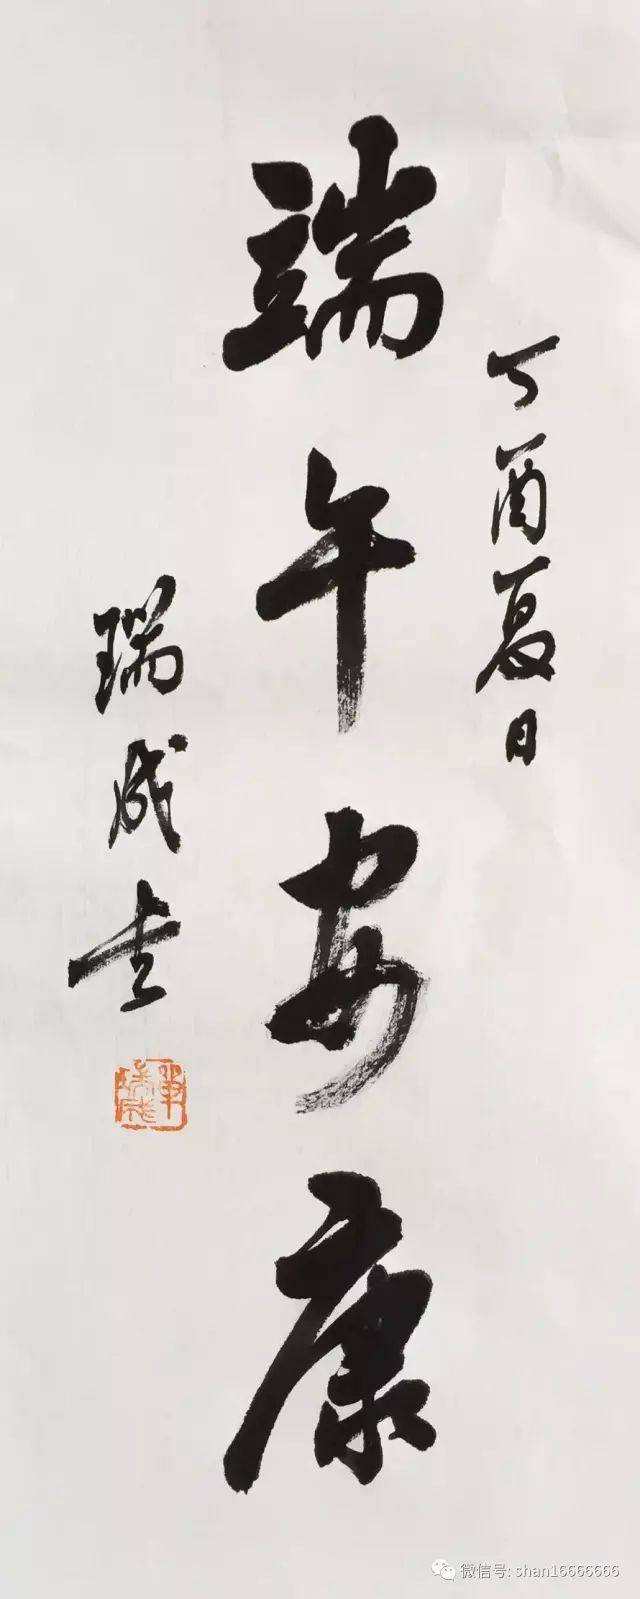 丁酉夏日
端午安康
瑞成书
微信号: shan16666666